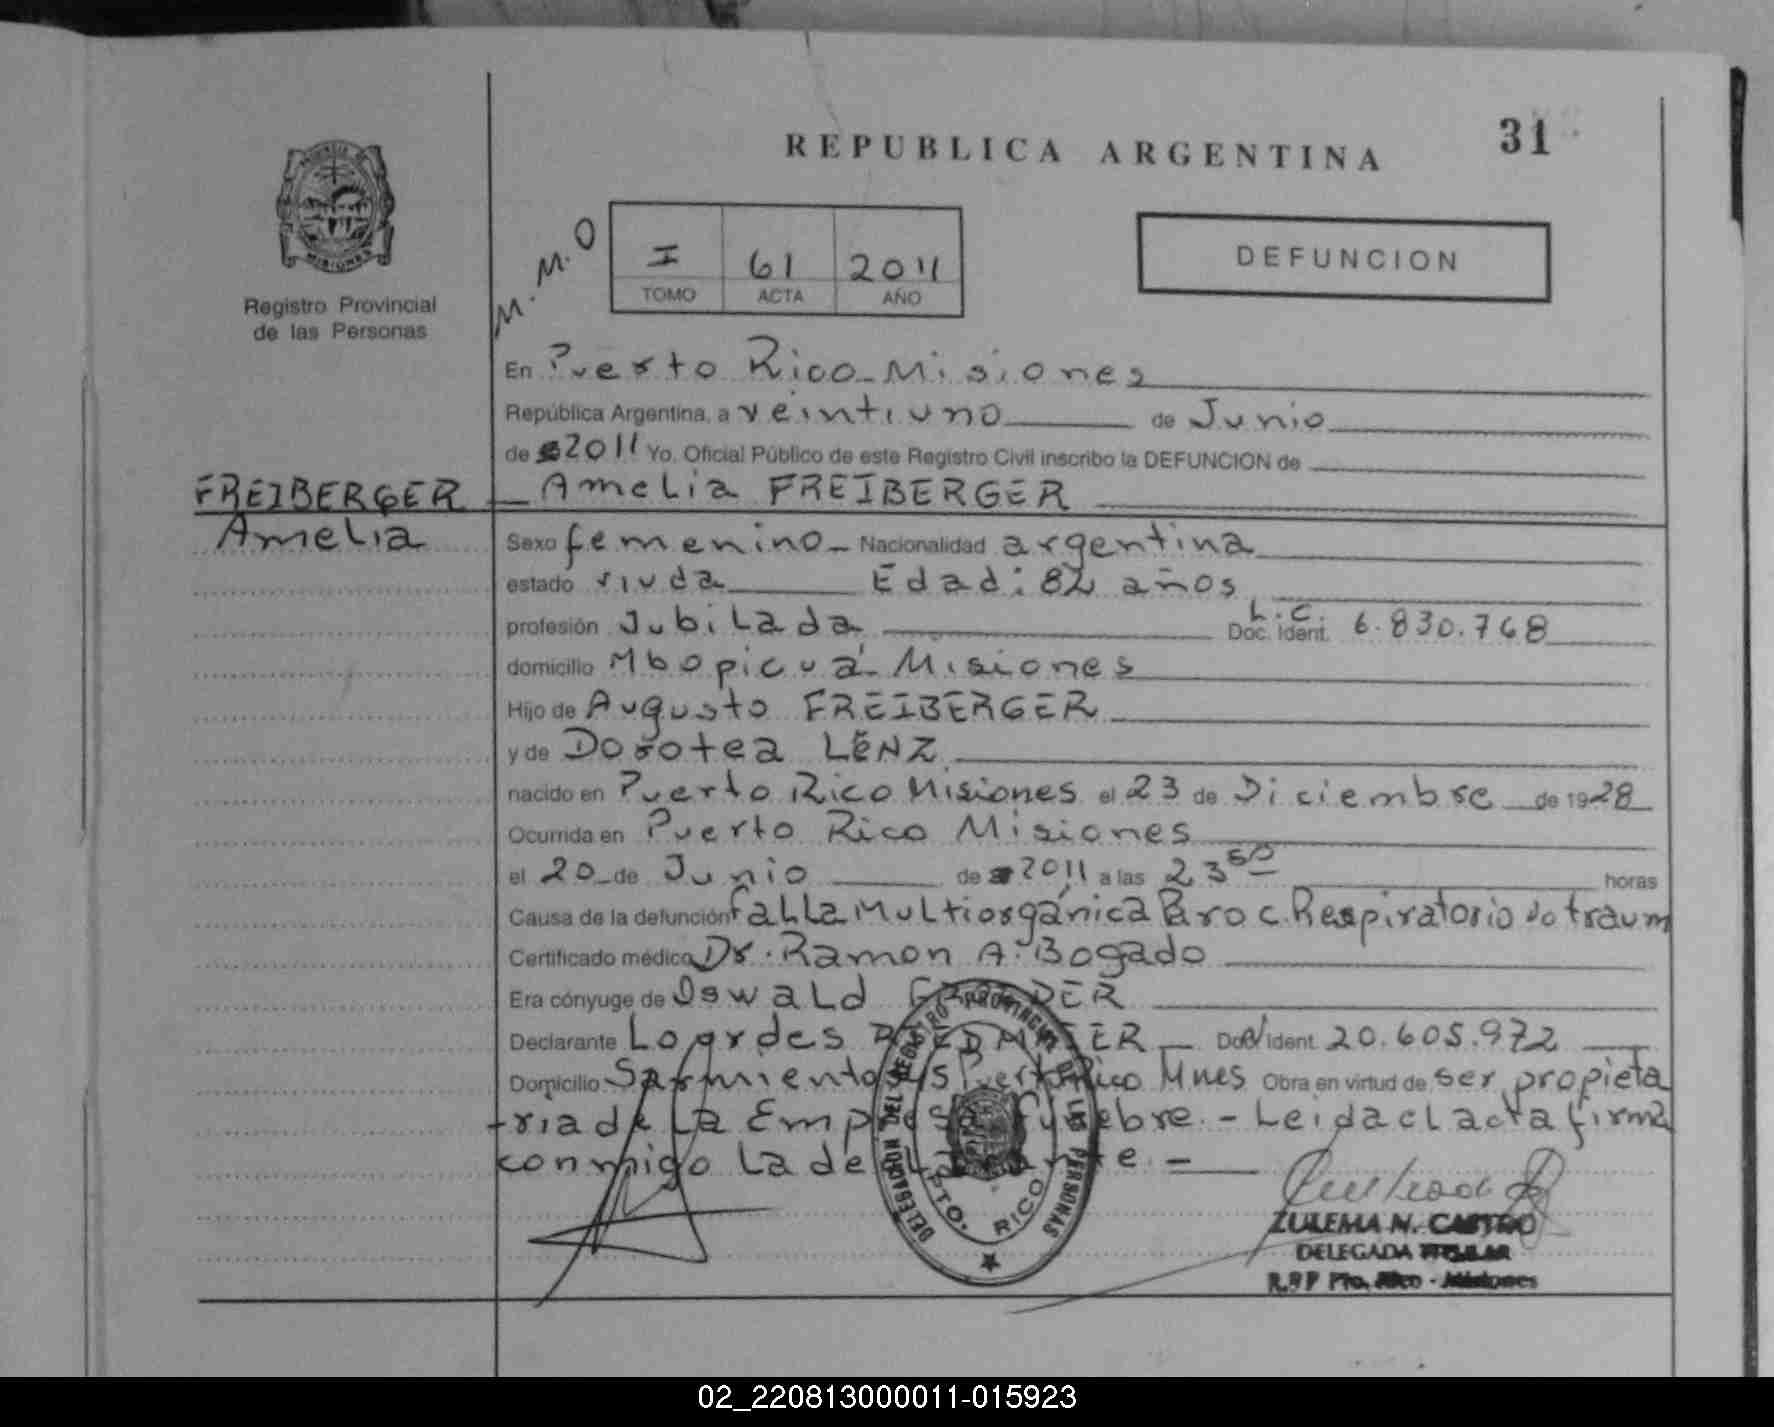 REPUBLICA ARGENTINA
31
PROVINCIA DE
MISIONES
Registro Provincial
de las Personas
M.M.O
I 61 2011
TOMO ACTA AÑO
DEFUNCION
En Puerto Rico - Misiones
República Argentina, a veintiuno de Junio
de 2011 Yo, Oficial Público de este Registro Civil inscribo la DEFUNCION de
FREIBERGER
Amelia
Amelia FREIBERGER
Sexo femenino - Nacionalidad argentina
estado viuda Edad: 82 años
profesión Jubilada L.C. Doc. Ident. 6.830.768
domicilio Mbopicuá - Misiones
Hijo de Augusto FREIBERGER
y de Dorotea LENZ
nacido en Puerto Rico Misiones el 23 de Diciembre de 1928
Ocurrida en Puerto Rico Misiones
el 20 de Junio de 2011 a las 23 50 horas
Causa de la defunción falla Multiorgánica Paro c. Respiratorio no traum
Certificado médico Dr. Ramon A. Bogado
Era cónyuge de Oswald
Declarante Lourdes Doc. Ident. 20.605.972
Domicilio Sarmiento Puerto Rico Mnes Obra en virtud de ser propieta
-ria de La Empresa fúnebre. - Leida el acta firma
conmigo La declarante. -
DELEGACION DEL REGISTRO PROVINCIAL DE LAS PERSONAS
PTO. RICO
ZULEMA N. CASTRO
DELEGADA TITULAR
R.P.P Pto. Rico - Misiones
02_220813000011-015923